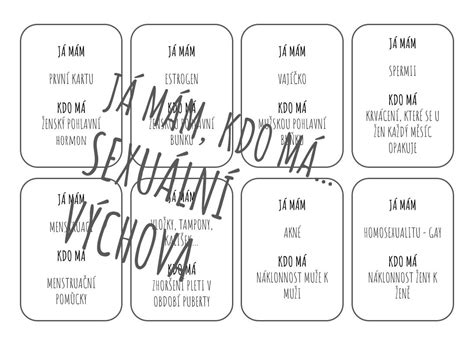 JÁ MÁM
PRVNÍ KARTU
KDO MÁ
ŽENSKÝ POHLAVNÍ
HORMON
JÁ MÁM
ESTROGEN
KDO MÁ
ŽENSKOU POHLAVNÍ
BUŇKU
JÁ MÁM
VAJÍČKO
KDO MÁ
MUŽSKOU POHLAVNÍ
BUŇKU
JÁ MÁM
SPERMII
KDO MÁ
KRVÁCENÍ, KTERÉ SE U
ŽEN KAŽDÝ MĚSÍC
OPAKUJE
JÁ MÁM, KDO MÁ...
SEXUÁLNÍ
VÝCHOVA
JÁ MÁM
MENSTRUACI
KDO MÁ
MENSTRUAČNÍ
POMŮCKY
JÁ MÁM
VLOŽKY, TAMPONY,
KALÍŠEK...
KDO MÁ
ZHORŠENÍ PLETI V
OBDOBÍ PUBERTY
JÁ MÁM
AKNÉ
KDO MÁ
NÁKLONNOST MUŽE K
MUŽI
JÁ MÁM
HOMOSEXUALITU - GAY
KDO MÁ
NÁKLONNOST ŽENY K
ŽENĚ